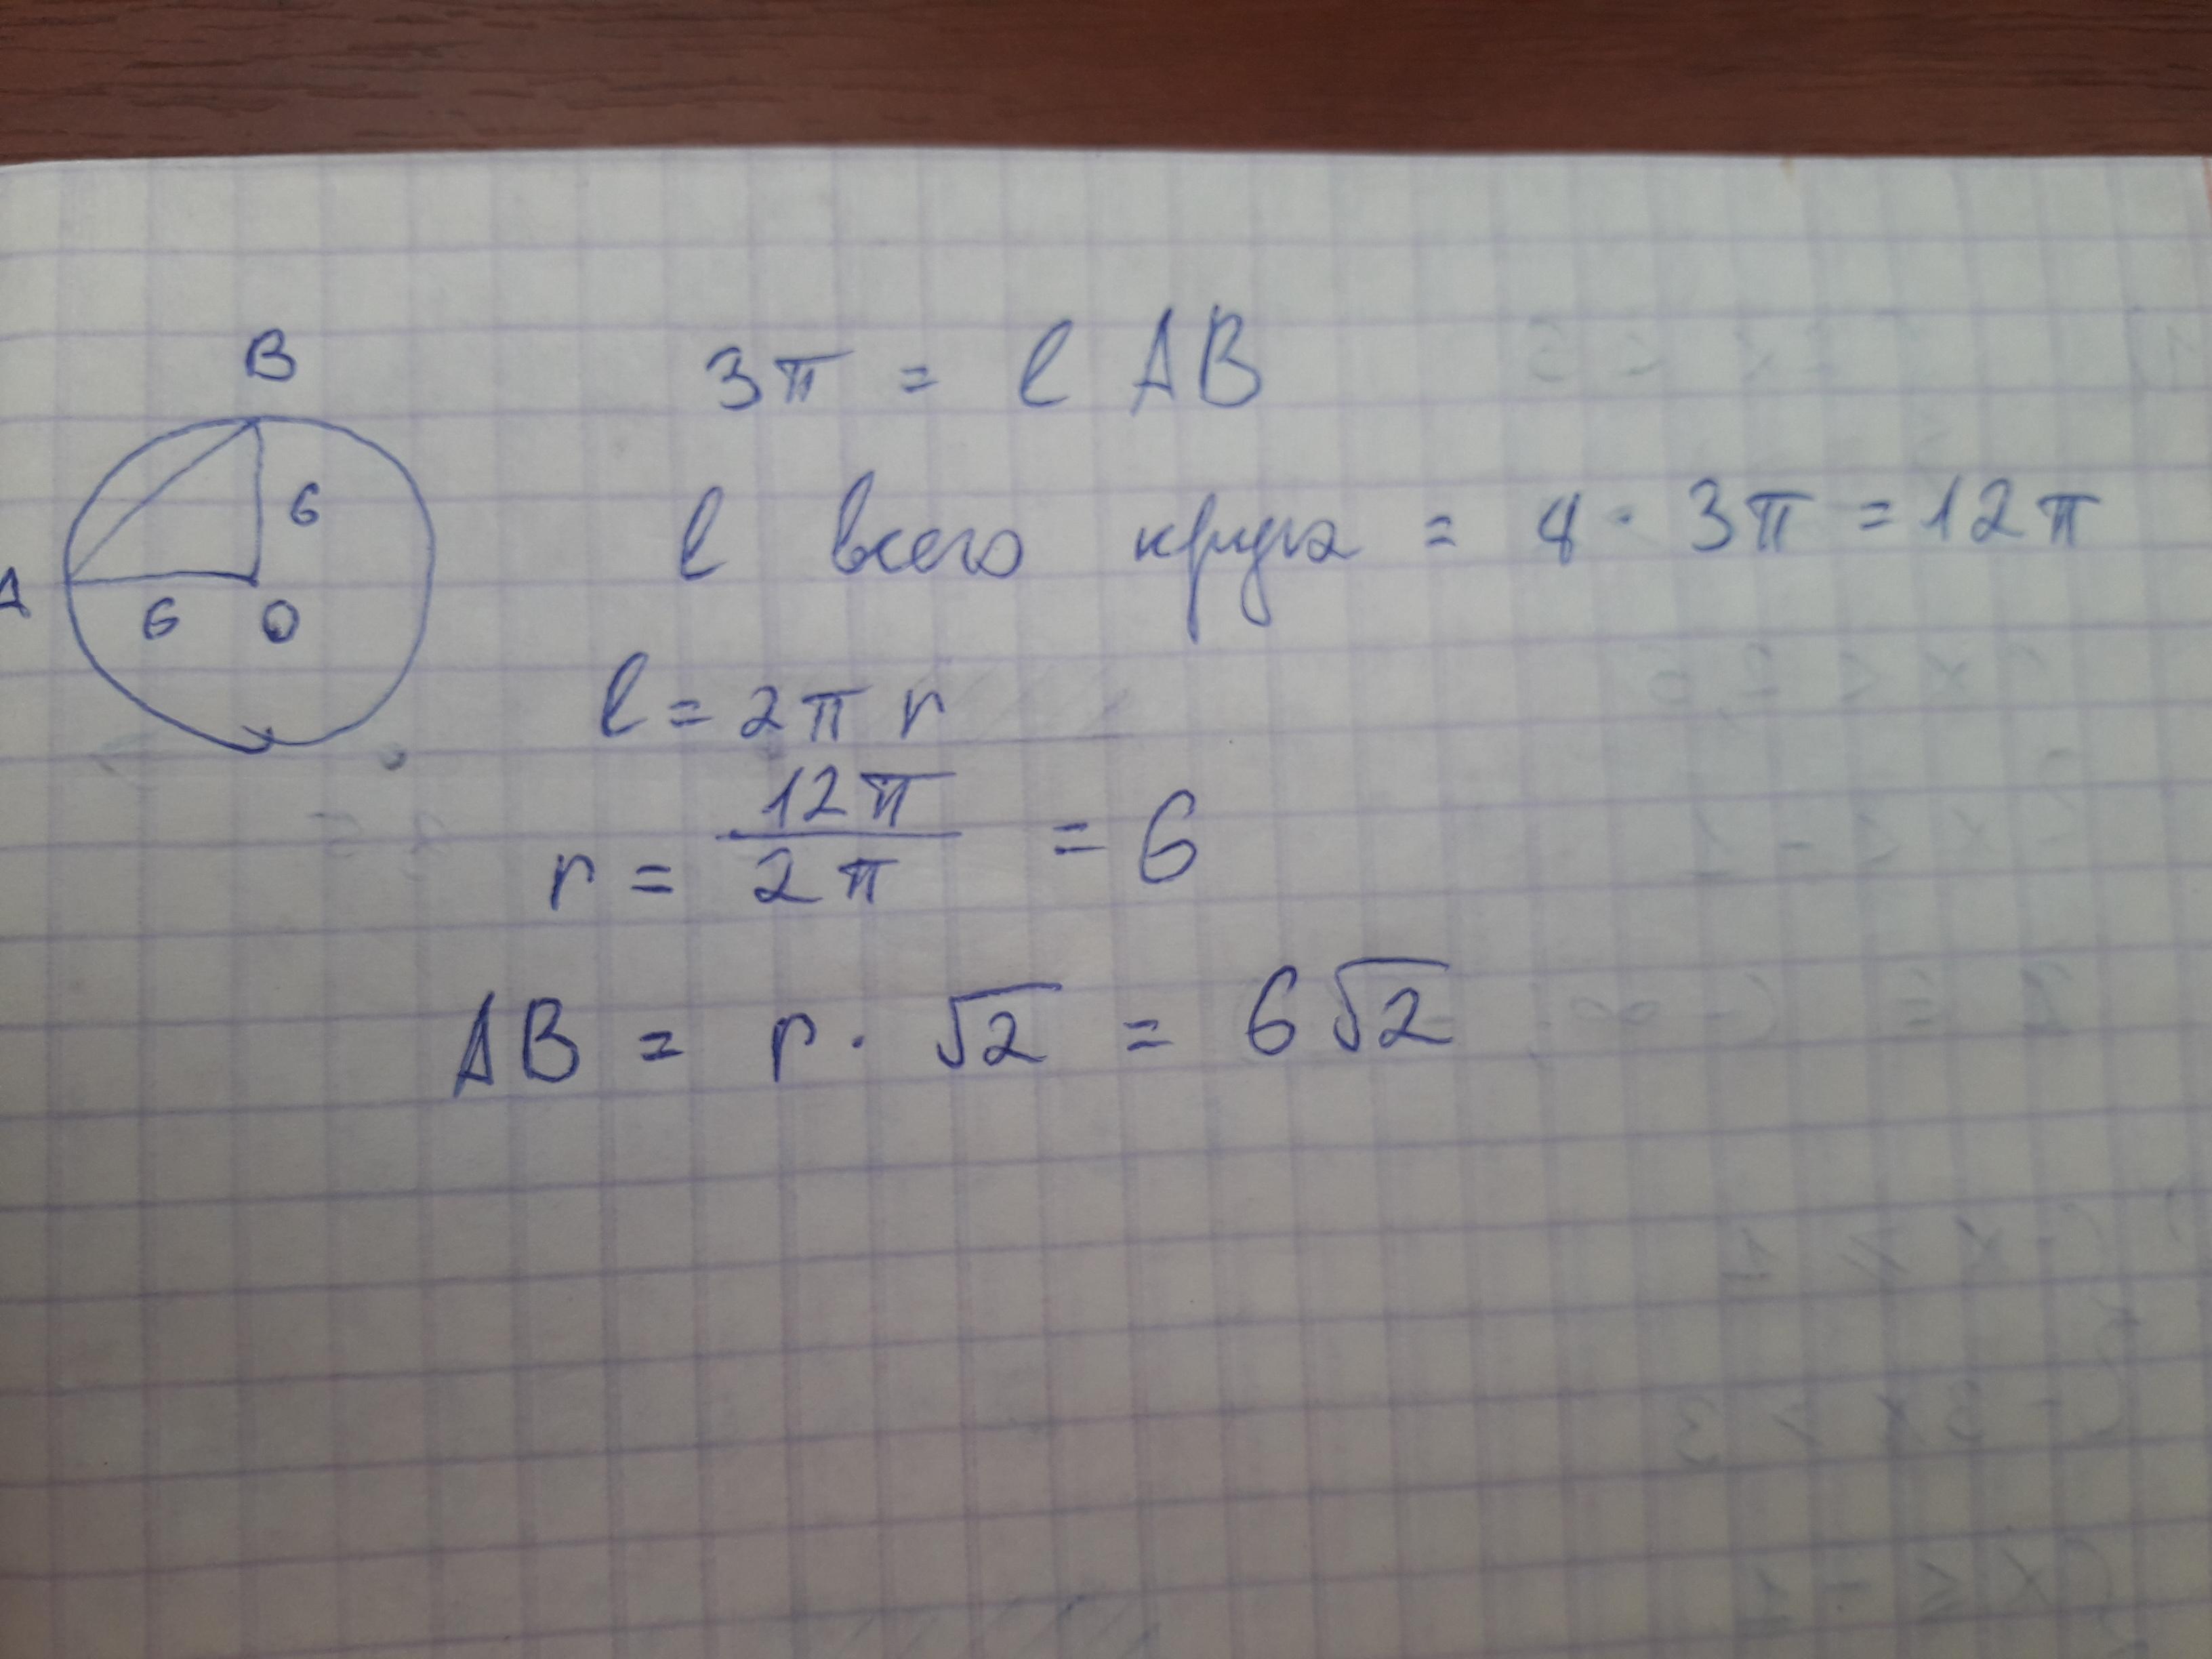 B
6
A
6 O
3π = l AB
l всего круга = 4 · 3π = 12π
l = 2π r
r = 12π / 2π = 6
AB = r · √2 = 6√2